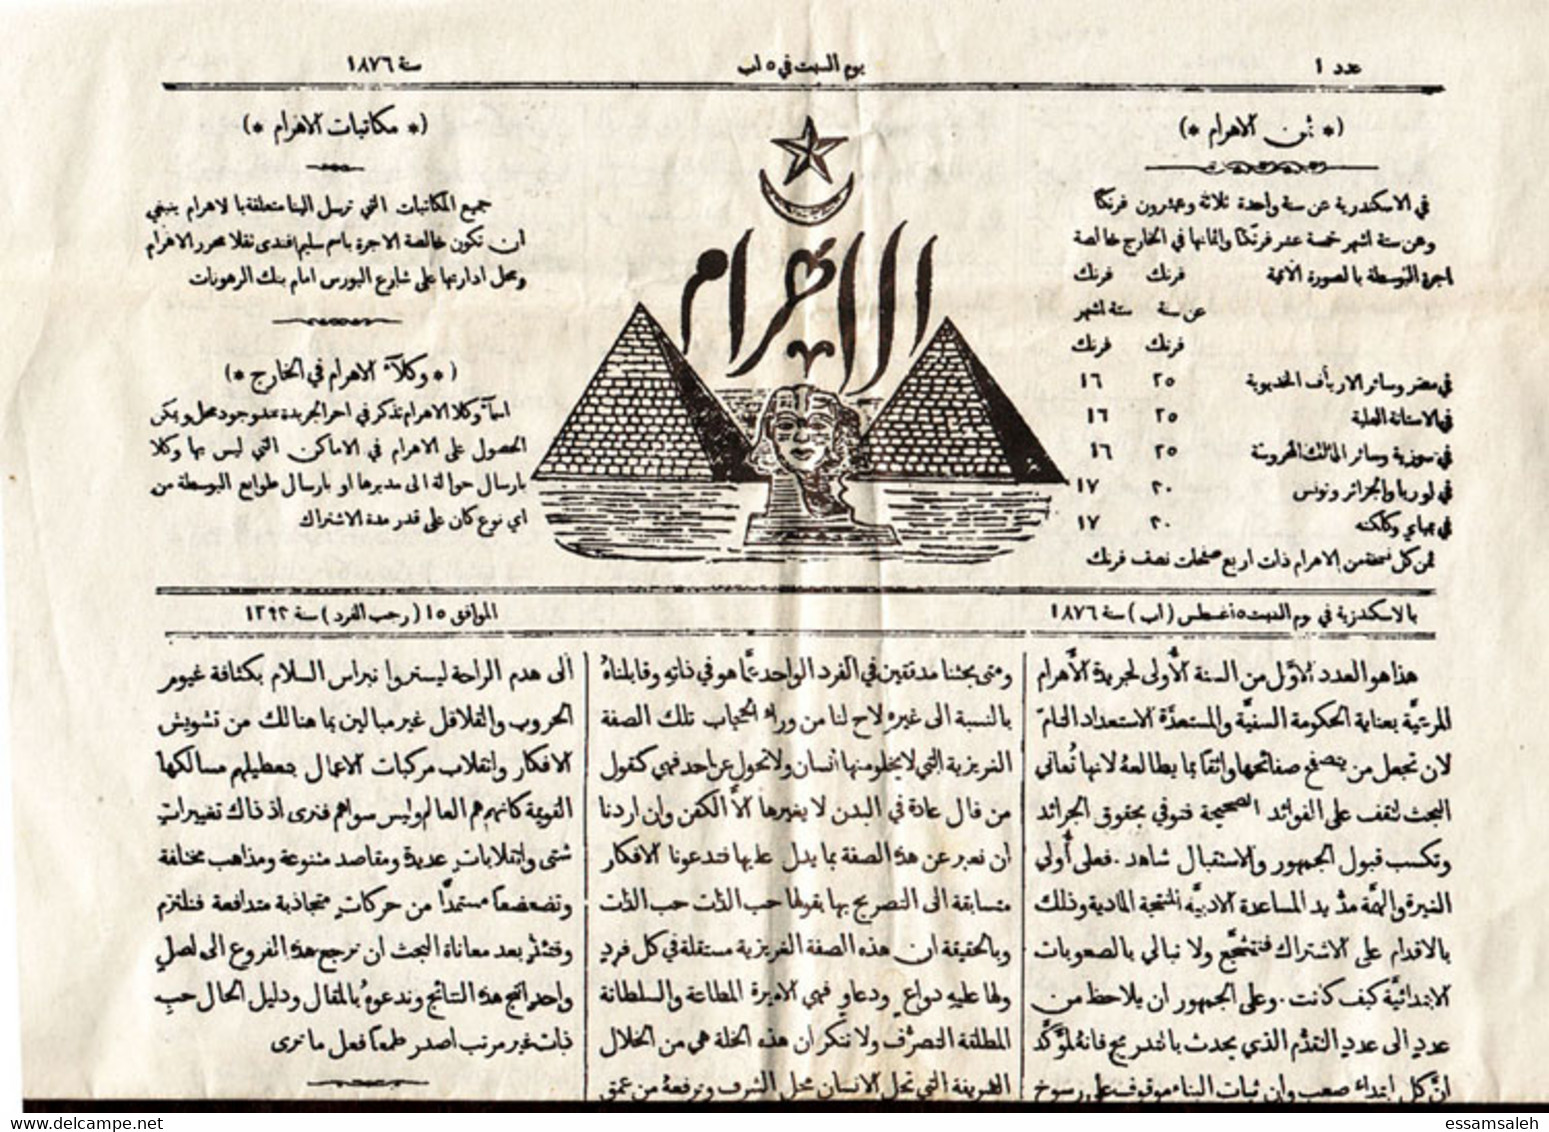 عدد ١
يوم السبت في ٥ اب
سنة ١٨٧٦
(* ثمن الاهرام *)
في الاسكندرية عن سنة واحدة ثلاثة وعشرون فرنكا
وعن ستة اشهر خمسة عشر فرنكا واثمانها في الخارج خالصة
اجرة البوسطة بالصورة الآتية
فرنك فرنك
عن سنة ستة اشهر
فرنك فرنك
في مصر وسائر الارياف الخديوية ٢٥ ١٦
في الاستانة العلية ٢٥ ١٦
في سورية وسائر الممالك المحروسة ٢٥ ١٦
في اوربا والجزائر وتونس ٣٠ ١٧
في بمباي وكلكته ٣٠ ١٧
ثمن كل نسخة من الاهرام ذات اربع صفحات نصف فرنك
الاهرام
(* مكاتبات الاهرام *)
جميع المكاتبات التي ترسل الينا متعلقة بالاهرام ينبغي
ان تكون خالصة الاجرة باسم سليم افندي تقلا محرر الاهرام
ومحل ادارتها على شارع البورس امام بنك الرهونات
(* وكلآء الاهرام في الخارج *)
اسمآء وكلا الاهرام تذكر في اخر الجريدة عند وجود محل ويمكن
الحصول على الاهرام في الاماكن التي ليس بها وكلا
بارسال حوالة الى مديرها او بارسال طوابع البوسطة من
اي نوع كان على قدر مدة الاشتراك
بالاسكندرية في يوم السبت ٥ اغسطس (اب) سنة ١٨٧٦
الموافق ١٥ (رجب الفرد) سنة ١٢٩٣
هذا هو العدد الاوّل من السنة الأولى لجريدة الأهرام
المرعيَّة بعناية الحكومة السنيَّة والمستعدَّة الاستعداد التامّ
لان تجعل من يتصفح صفائحها واثقا بما يطالعهُ لانها تُعاني
البحث لتقف على الفوائد الصحيحة فتوفي بحقوق الجرائد
وتكسب قبول الجمهور والاستقبال شاهد. فعلى أُولي
الغيرة والهمَّة مدُّ يد المساعدة الادبيَّة المنتجة المادية وذلك
بالاقدام على الاشتراك فنتشجَّع ولا نبالي بالصعوبات
الابتدائيَّة كيف كانت. وعلى الجمهور ان يلاحظ من
عددٍ الى عددٍ التقدُّم الذي يحدث بالتدريج فانهُ لمؤَكَّدٌ
انَّ كل ابتداء صعب وان ثبات البناء موقوف على رسوخ
ومتى بحثنا مدققين في الفرد الواحد عمَّا هو في ذاتهِ وقابلناهُ
بالنسبة الى غيرهِ لاح لنا من وراء الحجاب تلك الصفة
الغريزية التي لا يخلو منها أنسان ولا تحول عن احد فهي كقول
من قال عادة في البدن لا يغيرها الَّا الكفن وان اردنا
ان نعبر عن هذه الصفة بما يدل عليها فتدعونا الافكار
متسابقة الى التصريح بها بقولها حب الذَّات حب الذَّات
وبالحقيقة ان هذه الصفة الغريزية مستقلة في كل فردٍ
ولها عليهِ دواعٍ ودعاوٍ فهي الاميرة المطاعة والسلطانة
المطلقة التصرُّف ولا ننكر ان هذه الخلة هي من الخلال
الشريفة التي تحل الانسان محل الشرف وترفعهُ من عمق
الى هدم الراحة ليستروا نبراس السلام بكثافة غيوم
الحروب والقلاقل غير مبالين بما هنالك من تشويش
الافكار وانقلاب مركبات الاعمال بتعطيلهم مسالكها
القويمة كانهم هم العالم وليس سواهم فنرى اذ ذاك تغييراتٍ
شتى وانقلاباتٍ عديدة ومقاصد متنوعة ومذاهب مختلفة
وتضعضعاً مستمدًّا من حركاتٍ متجاذبة متدافعة فنلتزم
وقتئذٍ بعد معاناة البحث ان نرجع هذه الفروع الى اصلٍ
واحدٍ انتج هذه النتائج وندعوهُ بالمقال ودليل الحال حب
ذات غير مرتب اصدر طمعاً فعل ما نرى
delcampe.net
essamsaleh